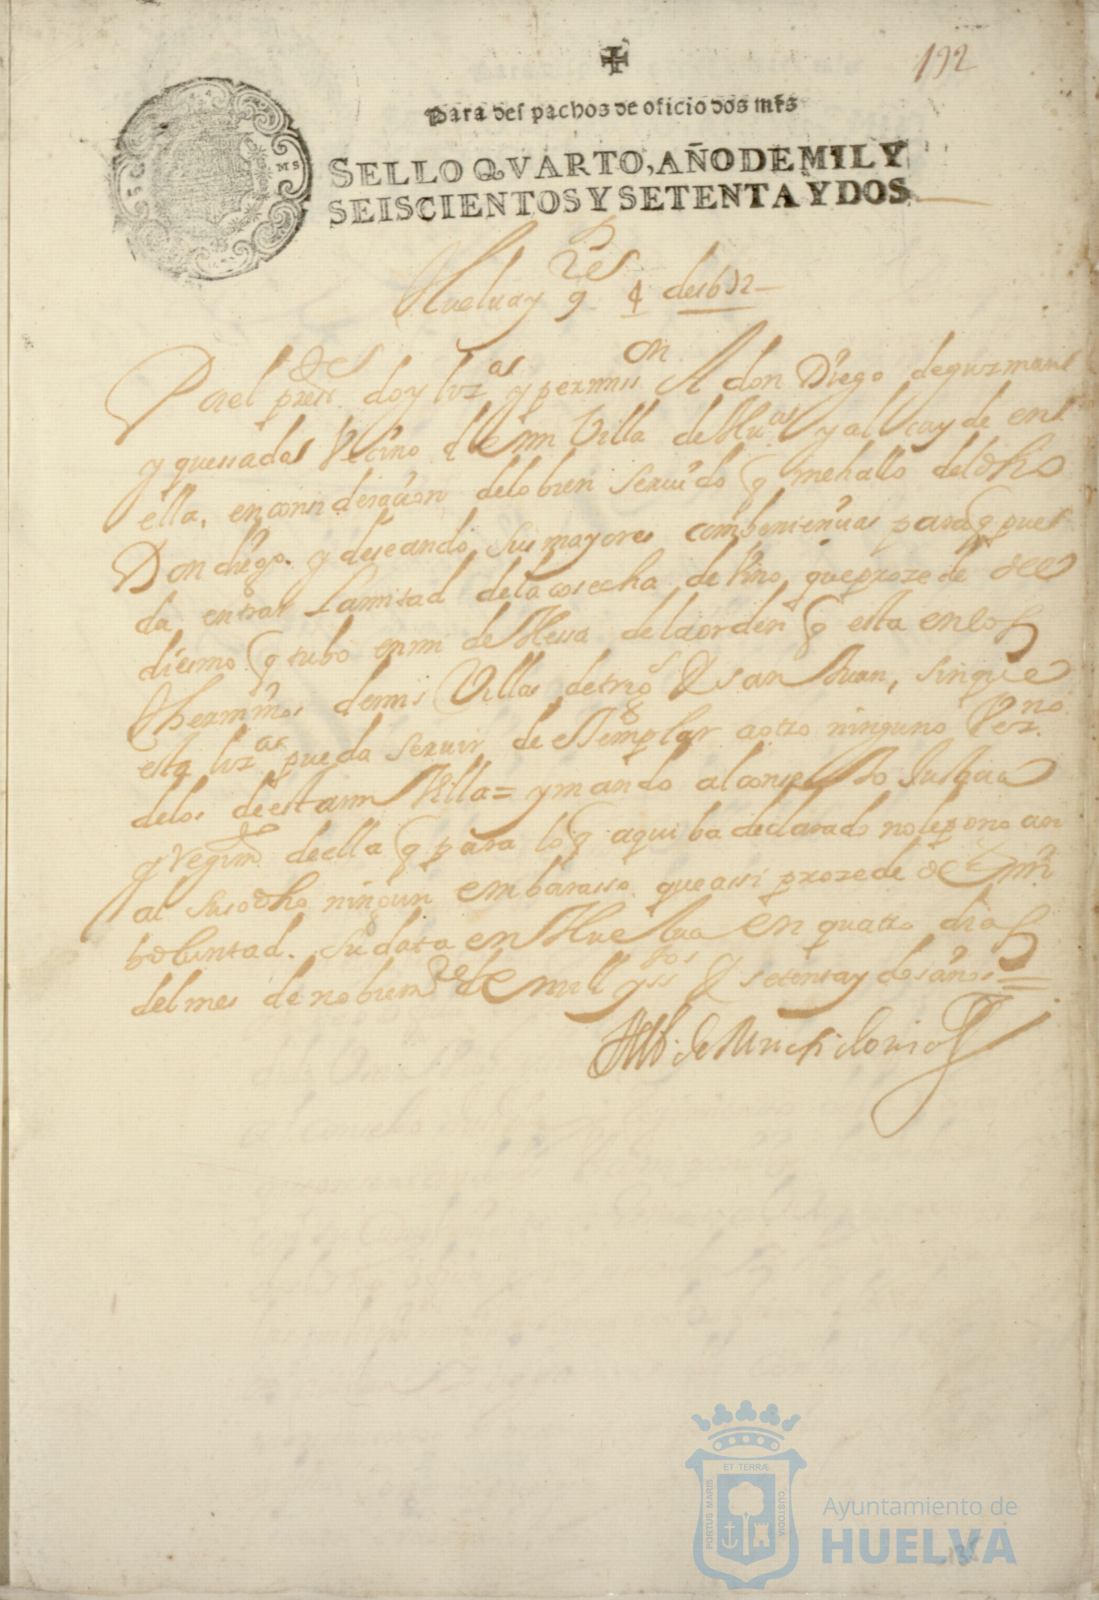 192
Para despachos de oficio dos mrs
SELLO QVARTO, AÑO DE MIL Y
SEISCIENTOS Y SETENTA Y DOS
Huelua y 9re 4 de 1672
Por el press.te doy liz.as y permiss.on A don Diego de guzman
y quessadas Vecino de mi Villa de Hu.a y alcayde en
ella, en considerazion de lo bien seruido q me hallo del dho
Don diego. y deseando sus mayores combenienzias para q pue
da entrar la mitad de la cosecha de Vino que prozede del
diesmo q tubo en mi deHessa de la orden q esta en los
thermi.nos de mis Villas de trig.s & san Juan, sin que
esta liz.as pueda seruir de eJemplar a otro ninguno Vez.no
de los de esta mi Villa = y mando al consejo Justizia
y Regim.to de ella q para lo q aqui ba declarado no le pongan
al susodho ningun embarasso que assi prozede de mi
boluntad. Su data en Huelua en quatro dias
del mes de nobiem.e de mill y ss.tos & setenta y dos años =
ET TERRÆ
PORTUS MARIS
CUSTODIA
Ayuntamiento de
HUELVA